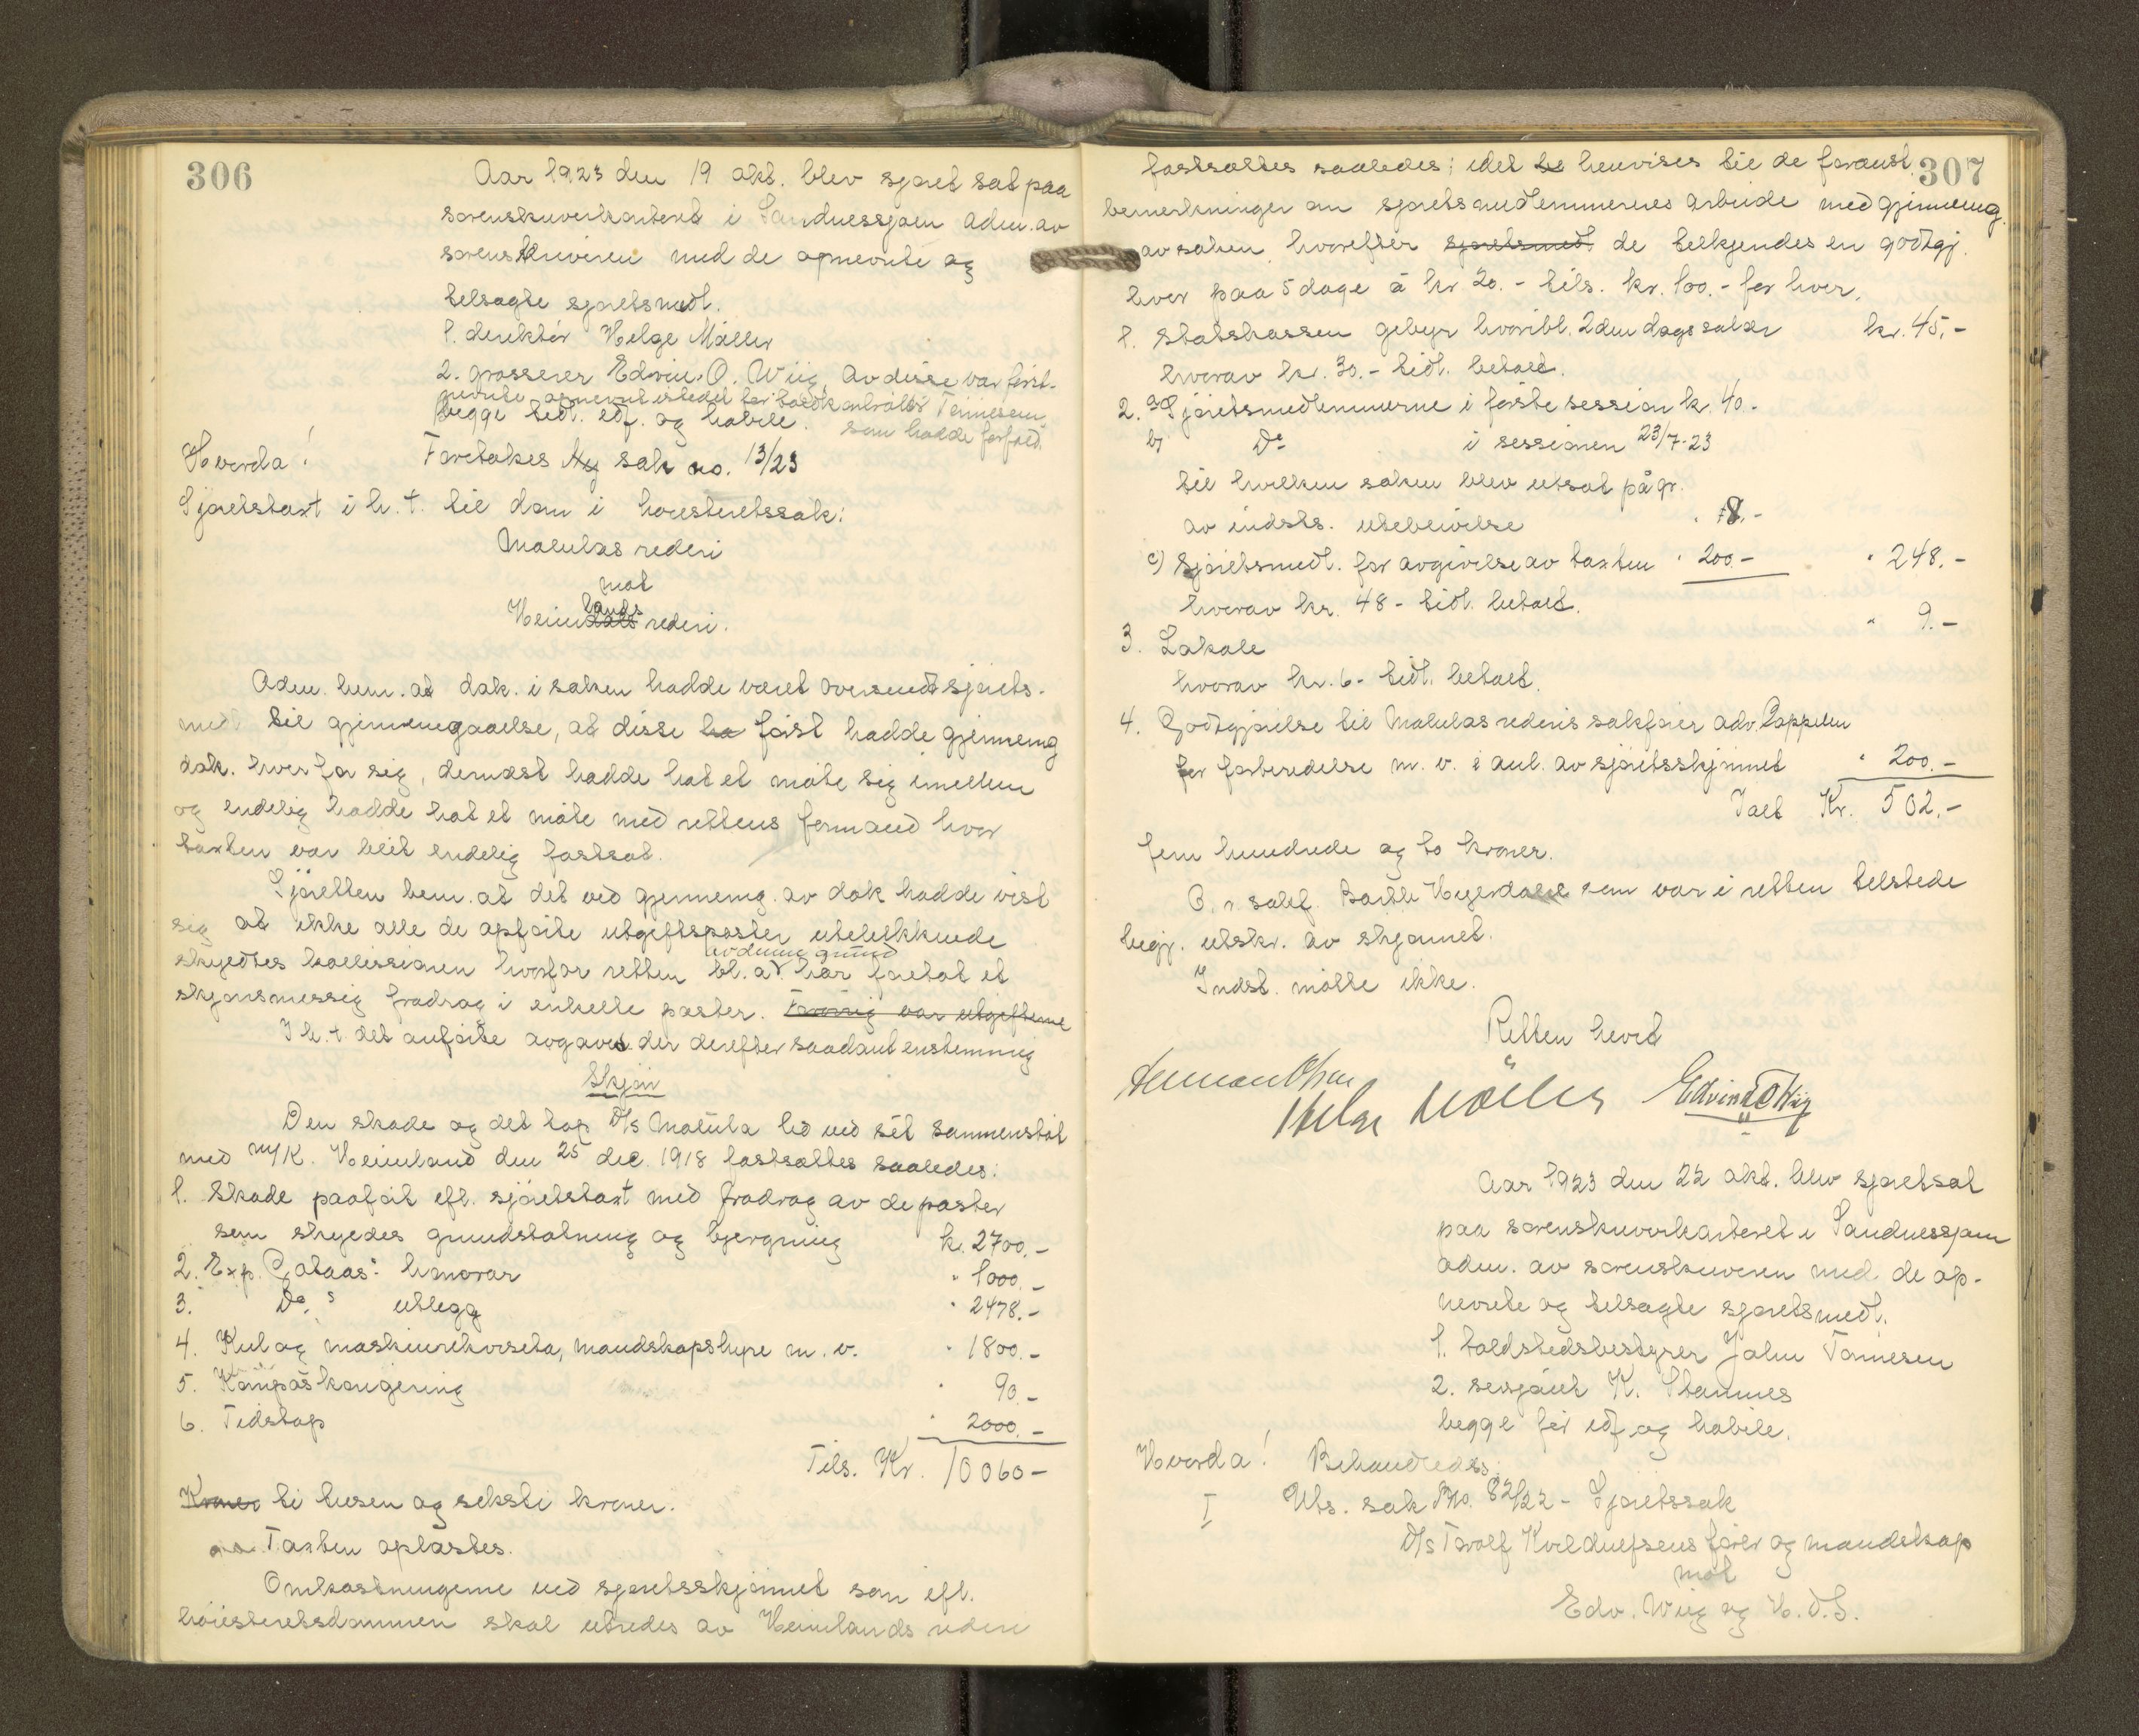 306
Aar 1923 den 19 okt. blev sjøret sat paa
sorenskriverkontoret i Sandnessjøen adm. av
sorenskriveren med de opnevnte og
tilsagte sjøretsmedl.
1. direktør Helge Møller
2. grosserer Edvin O. Wiig, av disse var først-
nevnte opnevnt istedet for toldkontrollør Tønnesen
som hadde forfald.
begge tidl. edf. og habile.
Hvorda!
Foretokes sak no. 13/23
Sjøretstaxt i h. t. til dom i høiesteretssak:
Matulas rederi
mot
Heimlands rederi.
Adm. bem. at dok. i saken hadde været oversendt sjørets-
medl. til gjennemgaaelse, at disse ha først hadde gjennemg
dok. hver for sig, dernæst hadde hat et møte sig imellem
og endelig hadde hat et møte med rettens formand hvor
taxten var blit endelig fastsat.
Sjøretten bem. at det ved gjennemg. av dok hadde vist
sig at ikke alle de opførte utgiftsposter utelukkende
skyldtes kollissionen hvorfor retten bl. a. av denne grund har foretat et
skjønsmessig fradrag i enkelte poster. Forøvrig var utgifterne
I h. t. det anførte avgaves der derefter saadant enstemmig
Skjøn
Den skade og det tap D/s Matula led ved sit sammenstøt
med M/K. Heimland den 25 dec. 1918 fastsættes saaledes:
1. Skade paaført eft. sjøretstaxt med fradrag av de poster
som skyldes grundstøtning og bjergning k. 2700.-
2. Exp. Gotaas: honorar " 1000.-
3. Do. s utlegg " 2478.-
4. Kul og maskinrekvisita, mandskapshyre m. v. " 1800.-
5. Kompaskorigering " 90.-
6. Tidstap " 2000.-
Tils. Kr. 10060-
Kroner ti tusen og seksti kroner.
Taxten oplæstes.
Omkostningerne ved sjøretsskjønnet som eft.
høiesteretsdommen skal utredes av Heimlands rederi
307
fastsættes saaledes; idet henvises til de foranst.
bemerkninger om sjøretsmedlemmernes arbeide med gjennemg.
av saken, hvorefter sjøretsmedl. de tilkjendes en godtgj.
hver paa 5 dage à kr 20.- tils. kr. 100.- for hver.
1. Statskassen gebyr hvoribl. 2den dags salær kr. 45.-
hvorav kr. 30.- tidl. betalt.
2. a) Sjøretsmedlemmerne i første session k. 40.-
b) Do i sessionen 23/7-23
til hvilken saken blev utsat på gr.
av indsts. uteblivelse " 8.-
c) Sjøretsmedl. for avgivelse av taxten " 200.- " 248.-
hvorav kr. 48- tidl. betalt.
3. Lokale " 9.-
hvorav kr. 6- tidl. betalt.
4. Godtgjørelse til Matulas rederis sakfører adv. Poppelin
for forberedelse m. v. i anl. av sjøretsskjønnet " 200.-
Ialt Kr. 502.-
fem hundrede og to kroner.
O. r. sakf. Heyerdahl som var i retten tilstede
begj. utskr. av skjønnet.
Indst. møtte ikke.
Retten hevet
Helge Møller Edvin O Wiig
Aar 1923 den 22 okt. blev sjøret sat
paa sorenskriverkontoret i Sandnessjøen
adm. av sorenskriveren med de op-
nevnte og tilsagte sjøretsmedl.
1. toldstedsbestyrer John Tønnesen
2. K. Stamnes
begge før edf. og habile.
Hvorda! Behandledes:
I Uts. sak No. 82/22 - Sjøretssak
D/s Torolf Kveldulfsens fører og mandskap
mot
Edv. Wiig og H. D. S.